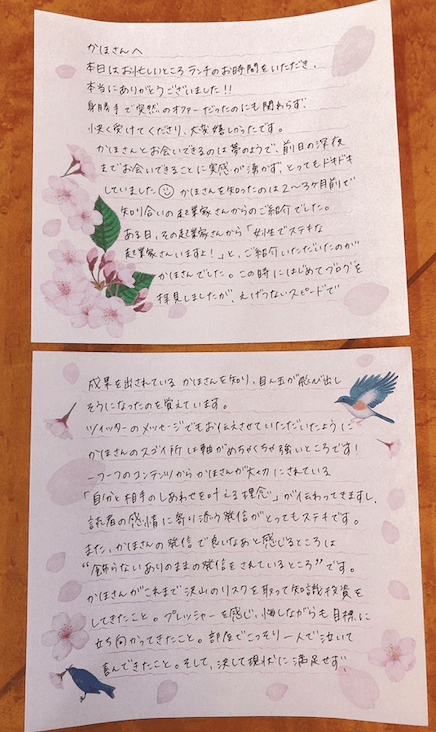 かほさんへ
本日はお忙しいところランチのお時間をいただき、
本当にありがとうございました!!
身勝手で突然のオファーだったのにも関わらず、
快く受けてくださり、大変嬉しかったです。
かほさんとお会いできるのは夢のようで、前日の深夜
までお会いできることに実感が湧かず、とってもドキドキ
していました☺ かほさんを知ったのは2〜3ヶ月前で
知り合いの起業家さんからのご紹介でした。
ある日、その起業家さんから「女性でステキな
起業家さんいますよ!」と、ご紹介いただいたのが
かほさんでした。この時にはじめてブログを
拝見しましたが、えげつないスピードで
成果を出されているかほさんを知り、目ん玉が飛び出し
そうになったのを覚えています。
ツイッターのメッセージでもお伝えさせていただいたように
かほさんのスゴイ所は軸がめちゃくちゃ強いところです!
一つ一つのコンテンツからかほさんが大切にされている
「自分と相手のしあわせを叶える理念」が伝わってきますし、
読者の感情に寄り添う発信がとってもステキです。
また、かほさんの発信で良いなあと感じるところは
"飾らないありのままの発信をされているところ"です。
かほさんがこれまで沢山のリスクを取って知識投資を
してきたこと。プレッシャーを感じ、悔しながらも目標に
立ち向かってきたこと。部屋でこっそり一人で泣いて
喜んできたこと。そして、決して現状に満足せず、